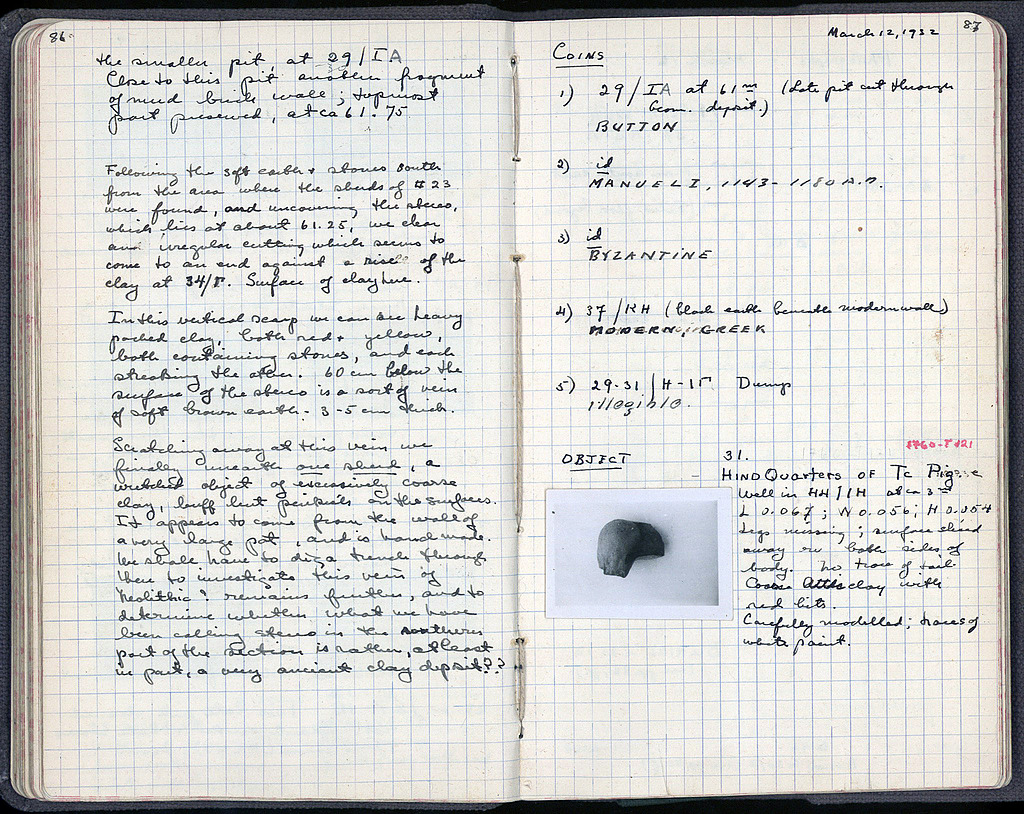 86
the smaller pit, at 29/ΙΑ
Close to this pit another fragment
of mud brick wall; topmost
part preserved, at ca 61.75
Following the soft earth + stones south
from the area where the sherds of #23
were found, and uncovering the stereo,
which lies at about 61.25, we clear
an irregular cutting which seems to
come to an end against a rise of the
clay at 34/Γ. Surface of clay here.
In this vertical scarp we can see heavy
packed clay, both red + yellow,
both containing stones, and each
streaking the other. 60 cm below the
surface of the stereo is a sort of vein
of soft brown earth - 3-5 cm thick.
Scratching away at this vein we
finally unearth one sherd, a
wretched object of excessively coarse
clay, buff but pinkish on the surfaces.
It appears to come from the wall of
a very large pot, and is hand made.
We shall have to dig a trench through
here to investigate this vein of
Neolithic? remains further, and to
determine whether what we have
been calling stereo in the southern
part of the section is rather, at least
in part, a very ancient clay deposit??
March 12, 1932 87
COINS
1) 29/ΙΑ at 61 m (Late pit cut through
Geom. deposit.)
BUTTON
2) id
MANUEL I, 1143-1180 A.D.
3) id
BYZANTINE
4) 37/ΚΗ (black earth beneath modern wall)
MODERN GREEK
5) 29-31/Η-ΙΓ Dump
illegible.
OBJECT
T 421
31.
HIND QUARTERS OF TC
Well in HH/IH at ca 3 m
L 0.067; W 0.056; H 0.054
Legs missing; surface
away on both sides of
body. No trace of tail
Coarse clay with
red bits.
Carefully modelled; traces of
white paint.